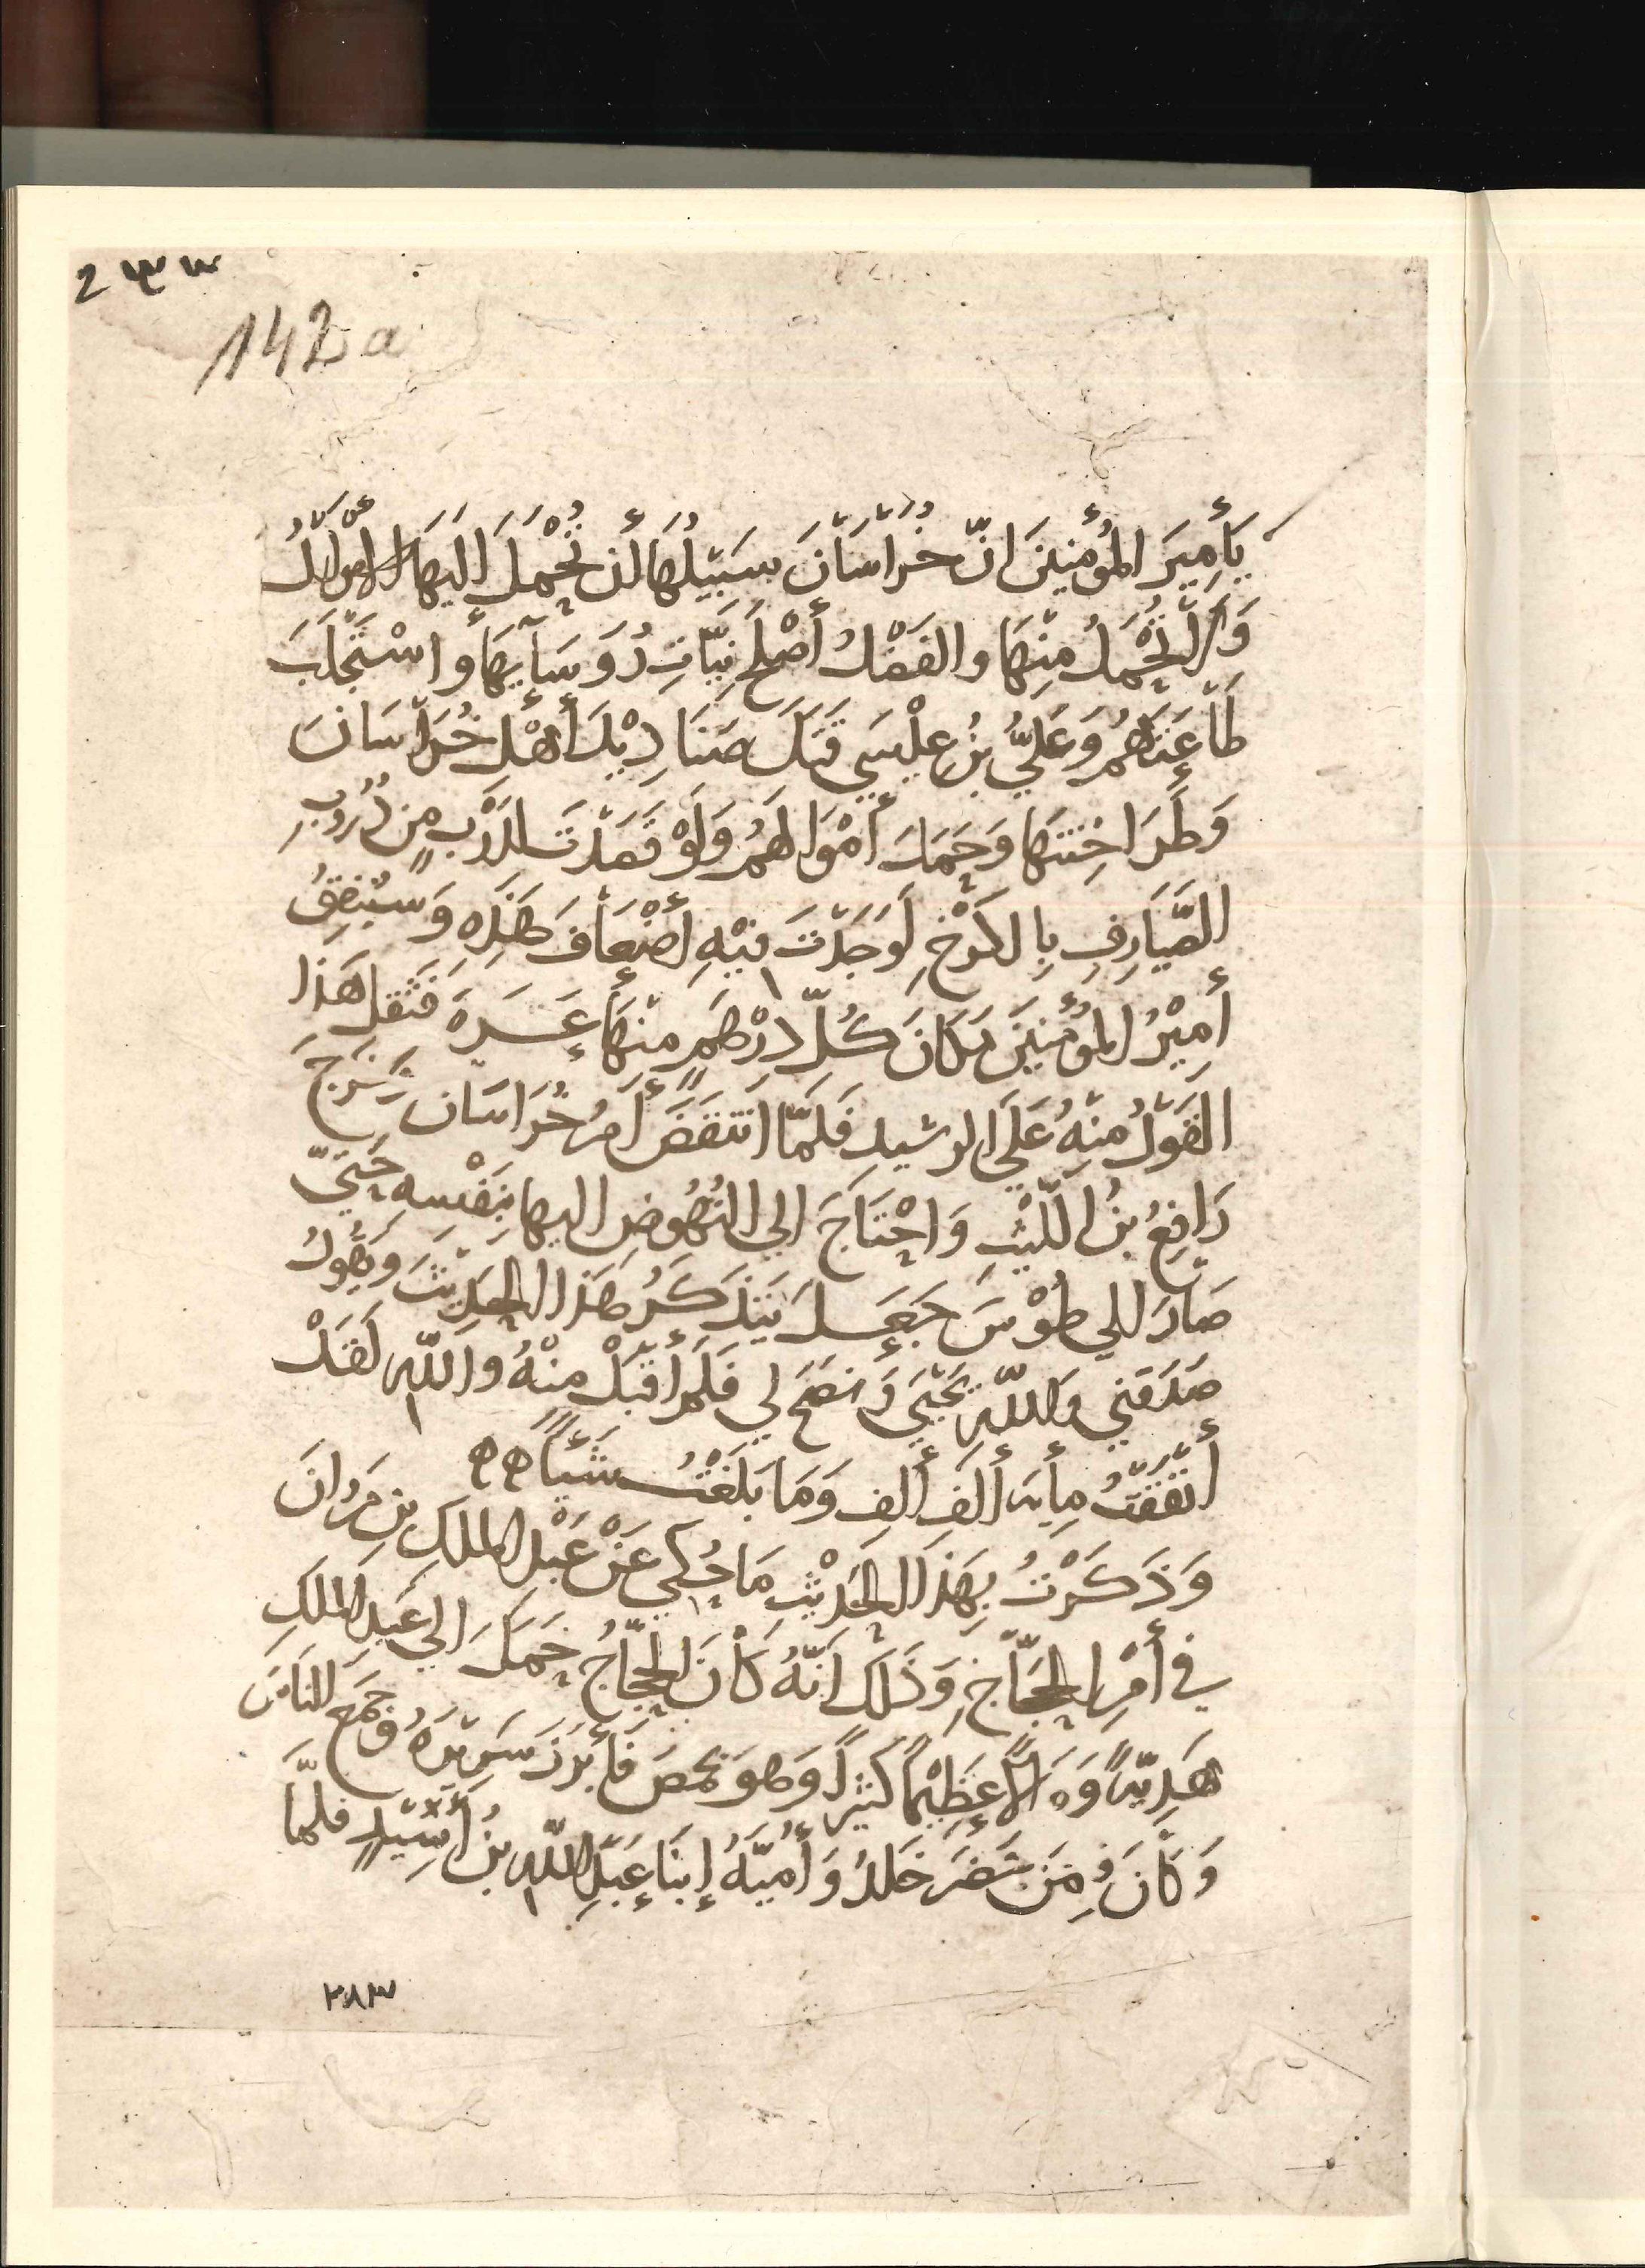 ٢٣٣
142a
يَأَمِيرَ المُؤْمِنِينَ انّ خُرَاسَانَ سَبِيْلُهَا أَن تُحْمَلَ اِلَيهَا الأَمْوَالُ
وَلَا تُحْمَلُ مِنْهَا والفَضْلُ أَصْلَحَ نِيَّاتِ رُوَسَآيِهَا وَاسْتَجْلَبَ
طَاعَتَهُمْ وَعَلِيُّ بنُ عِيْسَي قَتَلَ صَنَادِيْدَ أَهْلِ خُرَاسَانَ
وَطَرَاخِنَتَهَا وَحَمَلَ أَمْوَالَهُمْ وَلَوْ قَصَدْتَ لِدَرْبٍ مِن دُرُوبِ
الصَّيَارِفِ بِالكَرْخِ لَوَجَدْتَ فِيْهِ أَضْعَافَ هَذِهِ وَسَيُنْفِقُ
أَمِيْرُ المُؤْمِنِيْنَ مَكَانَ كُلِّ دِرْهَمٍ مِنْهَا عَشَرَةً فَثَقُلَ هَذَا
القَوْلُ مِنْهُ عَلَى الرشيدِ فَلَمَّا انْتَقَضَ أَمْرُ خُرَاسَان وَخَرَجَ
رَافِعُ بنُ اللَّيْثِ وَاحْتَاجَ الي النُهُوضِ اليها بِنَفْسِهِ حَتَّيٰ
صَارَ اِلَي طُوْسَ جَعَلَ يَتَذَكَرُ هَذَا الحَدِيْثَ وَيَقُولُ
صَدَقَنِي وَاللّهِ يَحْيَي وَنَصَحَ لي فَلَمْ أَقْبَلْ مِنْهُ واللّهِ لَقَدْ
أَنْفَقْتُ مِأيَة أَلفَ أَلفٍ وَمَا بَلَغْتُ شَيْأً ه ه
وَذَكَرْتُ بِهَذَا الحَدِيْثِ مَا حُكي عَنْ عَبْدِ المَلِكِ بن مَرْوَانَ
في أَمْرِ الحَجَّاجِ وَذَلِكَ انَّهُ كَانَ الحَجَّاجُ حَمَلَ الي عَبدِ المَلِكِ
هَدِيَّةً وَمَالاً عَظِيْماً كَثِيراً وَهوَ بحِمْصَ فَأَبْرَزَ سَرِيْرَهُ وَجَمَعَ النَاسَ
وَكَانَ فِمَن حَضَرَ خَلدُ وَأُمَيَّةُ اِبنَا عَبْدِ اللّهِ بنُ أُسَيْدٍ فلمَّا
٢٨٣